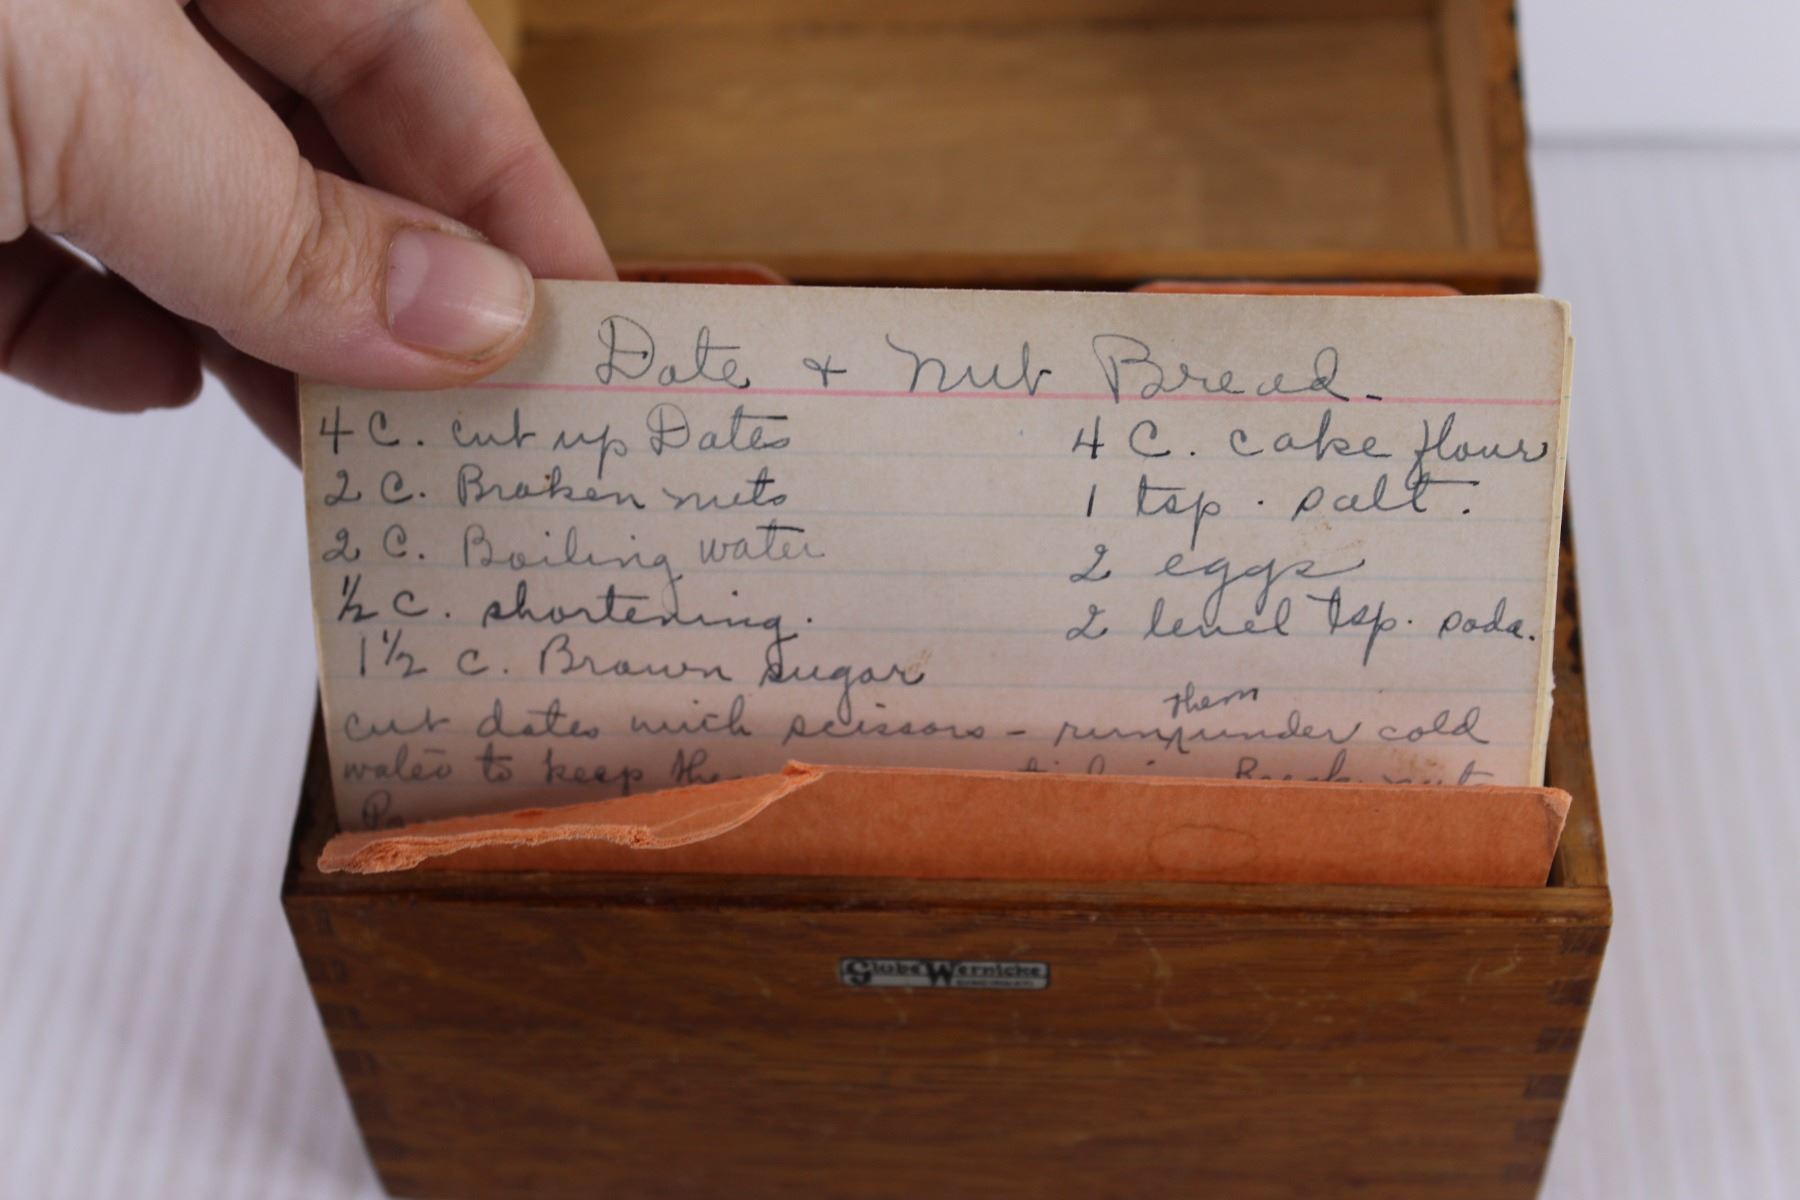 Date + Nut Bread-
4 C. cut up Dates
2 C. Broken nuts
2 C. Boiling water
1/2 C. shortening.
1 1/2 C. Brown sugar
4 C. cake flour
1 tsp. salt.
2 eggs
2 level tsp. soda.
cut dates with scissors - run them under cold
water to keep
Globe Wernicke
CINCINNATI